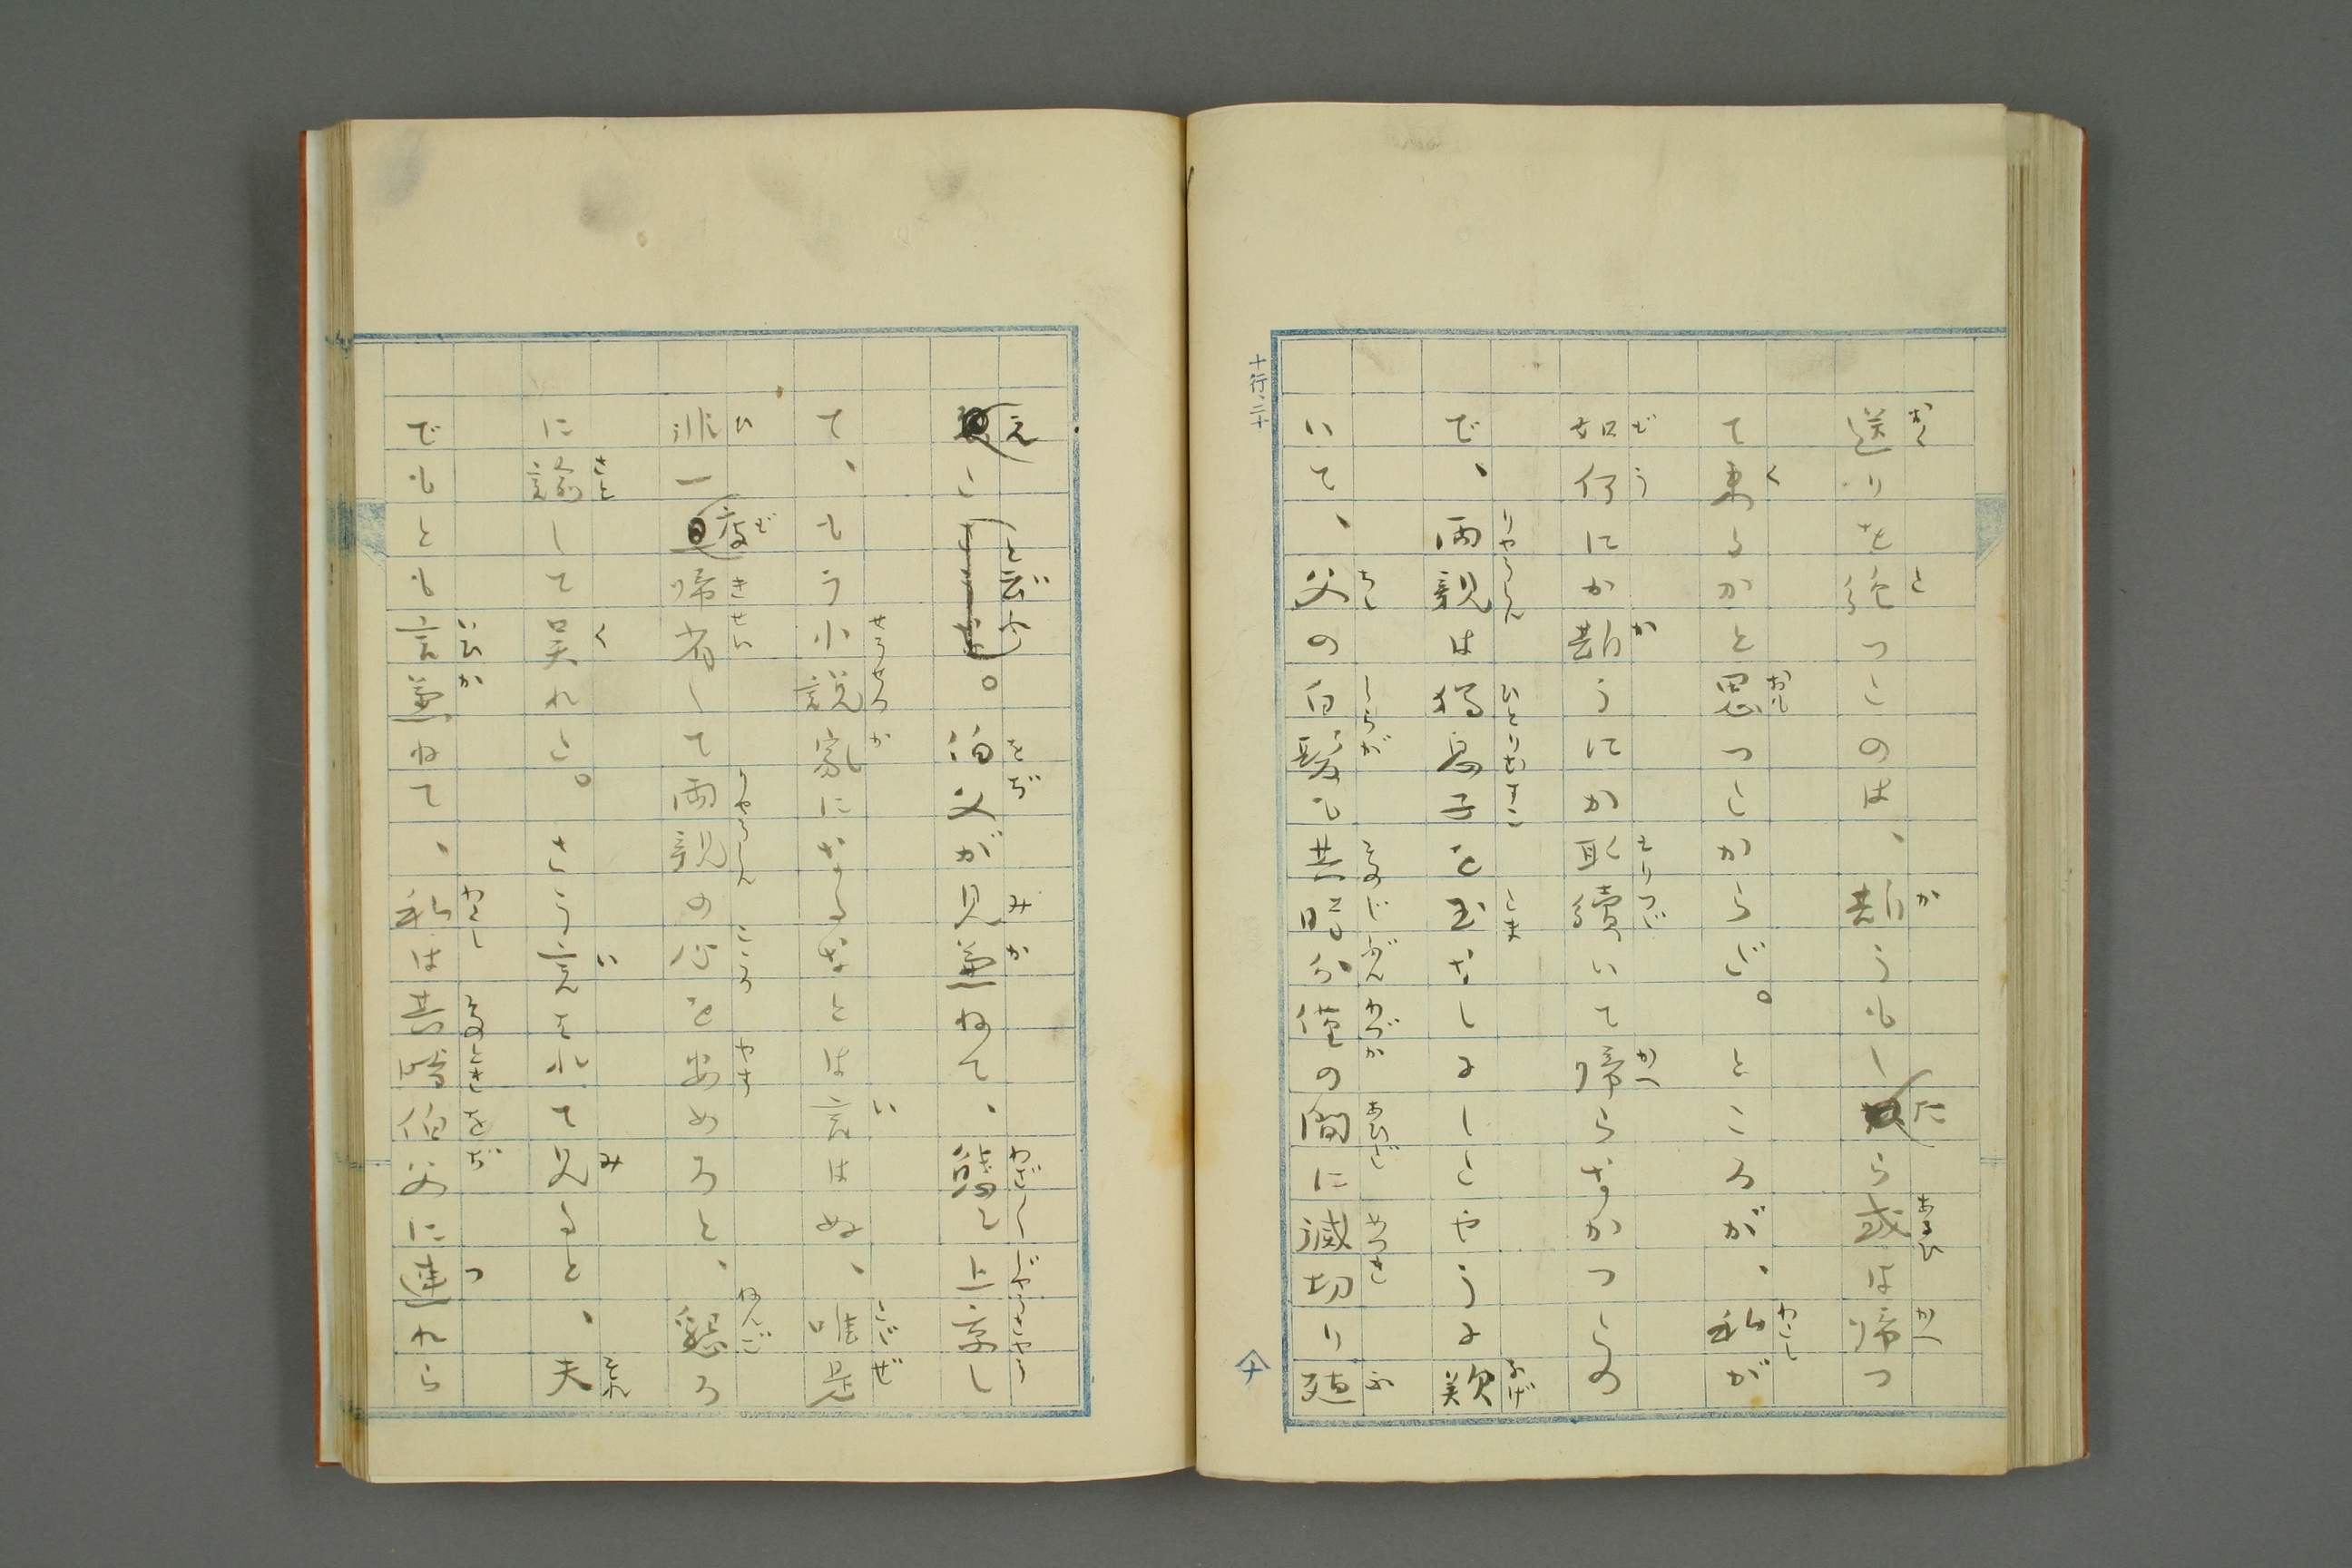 送りを絶つたのは、斯うもしたら或は帰つ
て来るかと思つたからだ。ところが、私が
如何にか斯うにか取続いて帰らなかつたの
で、両親は独息子を玉なしにしたやうに歎
いて、父の白髪も其時分僅の間に滅切り殖
えたと云ふ。伯父が見兼ねて、態と上京し
て、もう小説家になるなとは言はぬ、唯是
非一度帰省して両親の心を安めろと、懇ろ
に諭して呉れた。さう言はれて見ると、夫
でもとも言兼ねて、私は其時伯父に連れら
十行二十